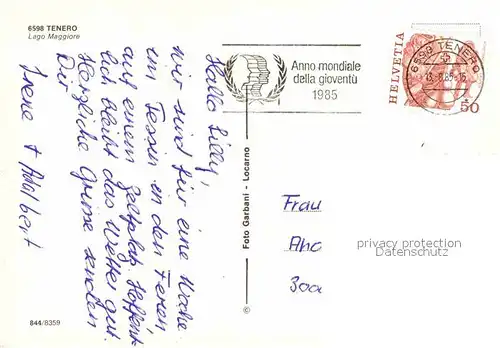 6598 TENERO
Lago Maggiore
Hallo Lilly,
wir sind für eine Woche
im Tessin in den Ferien
auf einem Zeltplatz. Hoffent-
lich bleibt das Wetter gut.
Herzliche Grüsse senden
Dir
Irene + Adalbert
844/8359
Foto Garbani - Locarno
©
Anno mondiale
della gioventù
1985
HELVETIA
50
6598 TENERO
Frau
privacy protection
Datenschutz